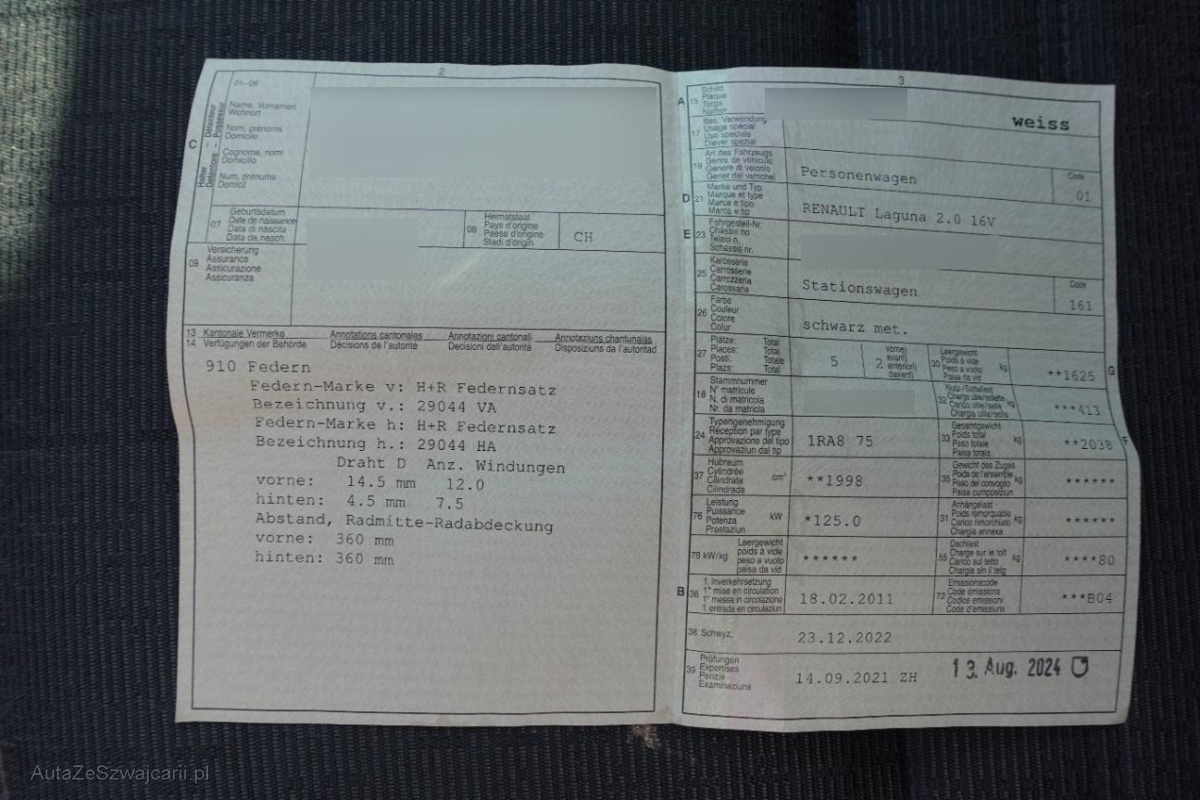 2
01-06
C
Halter Détenteur
Detentore - Possessur
Name, Vornamen
Wohnort
Nom, prénoms
Domicile
Cognome, nomi
Domicilio
Num, prenums
Domicil
07
Geburtsdatum
Date de naissance
Data di nascita
Data da nasch.
08
Heimatstaat
Pays d'origine
Paese d'origine
Stadi d'origin
CH
09
Versicherung
Assurance
Assicurazione
Assicuranza
13 Kantonale Vermerke Annotations cantonales Annotazioni cantonali Annotaziuns chantunalas
14 Verfügungen der Behörde Décisions de l'autorité Decisioni dell'autorità Disposiziuns da l'autoritad
910 Federn
Federn-Marke v: H+R Federnsatz
Bezeichnung v.: 29044 VA
Federn-Marke h: H+R Federnsatz
Bezeichnung h.: 29044 HA
Draht D Anz. Windungen
vorne: 14.5 mm 12.0
hinten: 4.5 mm 7.5
Abstand, Radmitte-Radabdeckung
vorne: 360 mm
hinten: 360 mm
3
A 15
Schild
Plaque
Targa
Numer
weiss
17
Bes. Verwendung
Usage spécial
Uso speciale
Diever spezial
19
Art des Fahrzeugs
Genre de véhicule
Genere di veicolo
Gener dal vehichel
Personenwagen
Code
01
D 21
Marke und Typ
Marque et type
Marca e tipo
Marca e tip
RENAULT Laguna 2.0 16V
E 23
Fahrgestell-Nr.
Châssis no
Telaio n.
Schassis nr.
25
Karosserie
Carrosserie
Carrozzeria
Carossaria
Stationswagen
Code
161
26
Farbe
Couleur
Colore
Colur
schwarz met.
27
Plätze: Total
Places: Total
Posti: Totale
Plazs: Total
5
2
vorne)
avant)
anteriori)
davant)
30
Leergewicht
Poids à vide
Peso a vuoto
Paisa da vid
kg
**1625
G
18
Stammnummer
N° matricule
N. di matricola
Nr. da matricla
32
Nutz-/Sattellast
Charge utile/sellette
Carico utile/sella
Chargia utila/sella
kg
***413
24
Typengenehmigung
Réception par type
Approvazione del tipo
Approvaziun dal tip
1RA8 75
33
Gesamtgewicht
Poids total
Peso totale
Paisa totala
kg
**2038
F
37
Hubraum
Cylindrée
Cilindrata
Cilindrada
cm³
**1998
35
Gewicht des Zuges
Poids de l'ensemble
Peso del convoglio
Paisa cumposiziun
kg
******
76
Leistung
Puissance
Potenza
Prestaziun
kW
*125.0
31
Anhängelast
Poids remorquable
Carico rimorchiato
Chargia annexa
kg
******
78 kW/kg
Leergewicht
poids à vide
peso a vuoto
paisa da vid
******
55
Dachlast
Charge sur le toit
Carico sul tetto
Chargia sin il tetg
kg
****80
B 36
1. Inverkehrsetzung
1re mise en circulation
1a messa in circolazione
1. entrada en circulaziun
18.02.2011
72
Emissionscode
Code émissions
Codice emissioni
Code d'emissiuns
***B04
38 Schwyz,
23.12.2022
39
Prüfungen
Expertises
Perizie
Examinaziuns
14.09.2021 ZH
13. Aug. 2024
AutaZeSzwajcarii.pl